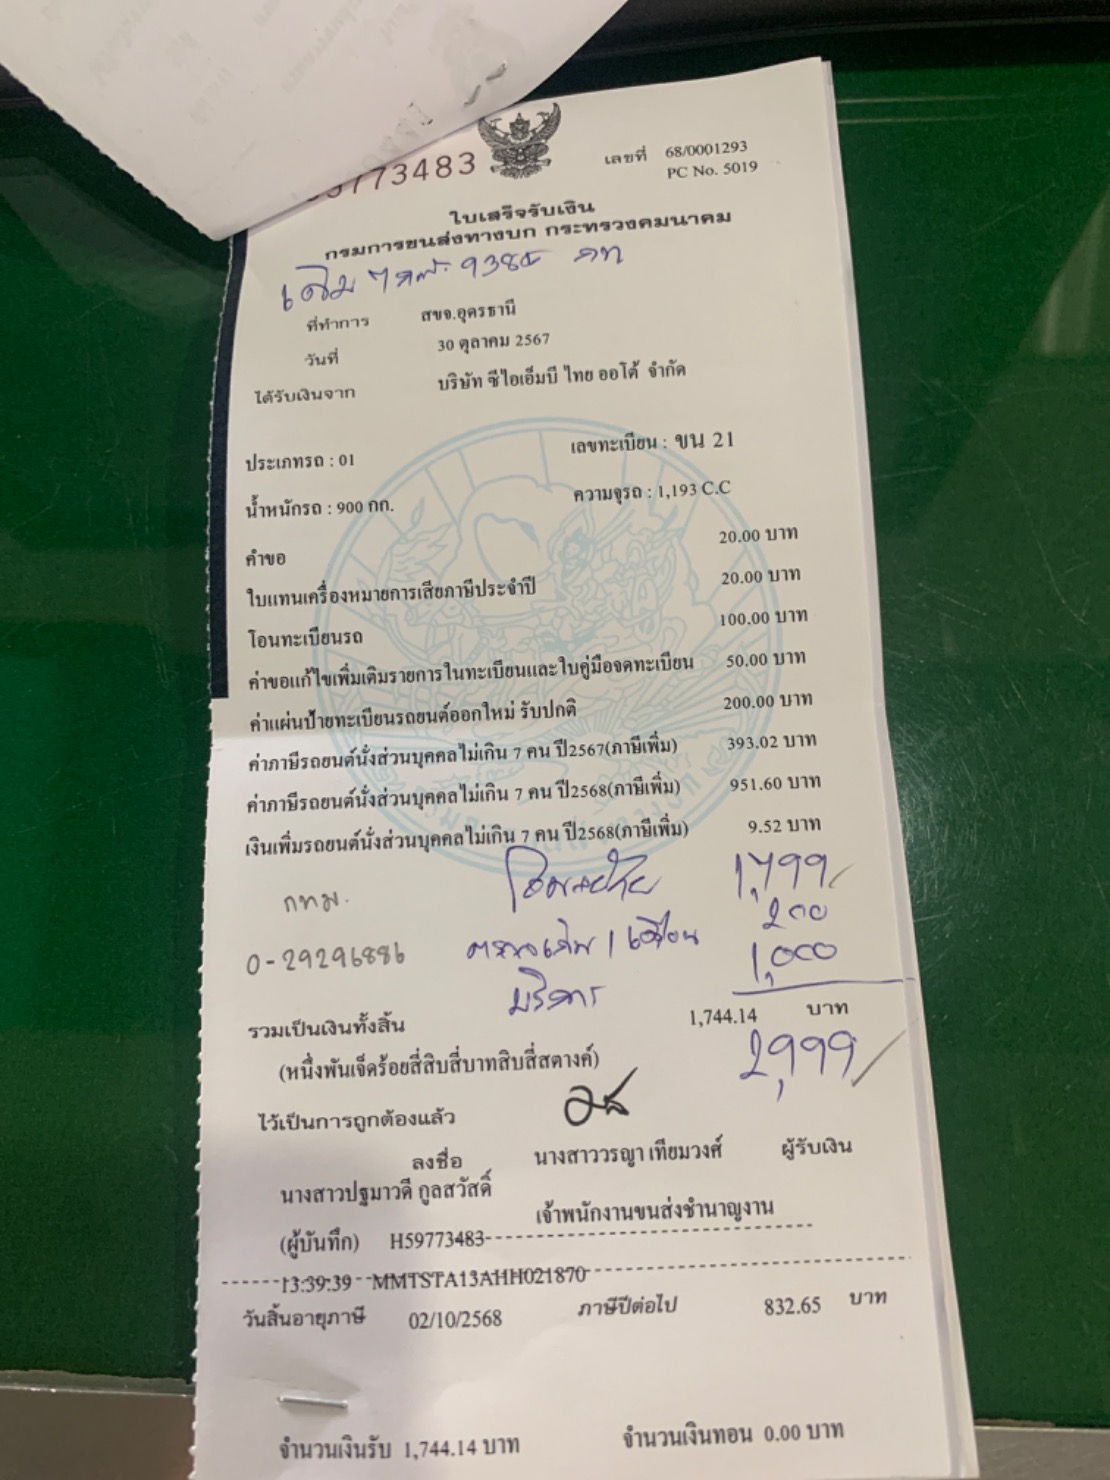 773483
เลขที่ 68/0001293
PC No. 5019
ใบเสร็จรับเงิน
กรมการขนส่งทางบก กระทรวงคมนาคม
เดิม 9385 กท
ที่ทำการ สขจ.อุดรธานี
วันที่ 30 ตุลาคม 2567
ได้รับเงินจาก บริษัท ซีไอเอ็มบี ไทย ออโต้ จำกัด
ประเภทรถ : 01 เลขทะเบียน : ขน 21
น้ำหนักรถ : 900 กก. ความจุรถ : 1,193 C.C
คำขอ 20.00 บาท
ใบแทนเครื่องหมายการเสียภาษีประจำปี 20.00 บาท
โอนทะเบียนรถ 100.00 บาท
ค่าขอแก้ไขเพิ่มเติมรายการในทะเบียนและใบคู่มือจดทะเบียน 50.00 บาท
ค่าแผ่นป้ายทะเบียนรถยนต์ออกใหม่ รับปกติ 200.00 บาท
ค่าภาษีรถยนต์นั่งส่วนบุคคลไม่เกิน 7 คน ปี2567(ภาษีเพิ่ม) 393.02 บาท
ค่าภาษีรถยนต์นั่งส่วนบุคคลไม่เกิน 7 คน ปี2568(ภาษีเพิ่ม) 951.60 บาท
เงินเพิ่มรถยนต์นั่งส่วนบุคคลไม่เกิน 7 คน ปี2568(ภาษีเพิ่ม) 9.52 บาท
กทม. 1,799
200
0-29296886 1,000
บริการ
รวมเป็นเงินทั้งสิ้น 1,744.14 บาท
(หนึ่งพันเจ็ดร้อยสี่สิบสี่บาทสิบสี่สตางค์) 2,999
ไว้เป็นการถูกต้องแล้ว
ลงชื่อ นางสาววรญา เทียมวงศ์ ผู้รับเงิน
นางสาวปฐมาวดี กูลสวัสดิ์ เจ้าพนักงานขนส่งชำนาญงาน
(ผู้บันทึก) H59773483
13:39:39 MMTSTA13AHH021870
วันสิ้นอายุภาษี 02/10/2568 ภาษีปีต่อไป 832.65 บาท
จำนวนเงินรับ 1,744.14 บาท จำนวนเงินทอน 0.00 บาท